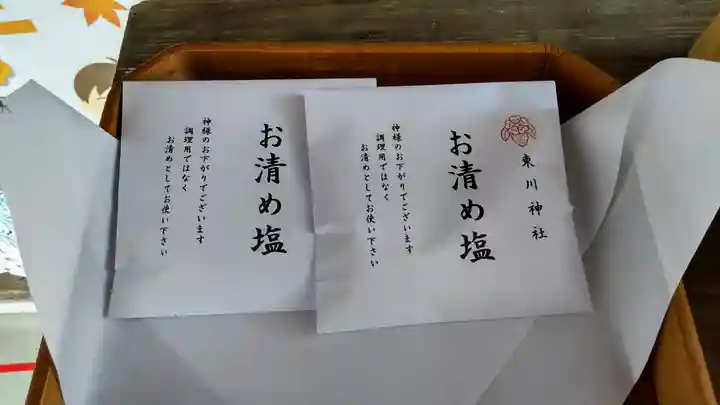 東川神社
お清め塩
神様のお下がりでございます
調理用ではなく
お清めとしてお使い下さい
お清め塩
神様のお下がりでございます
調理用ではなく
お清めとしてお使い下さい